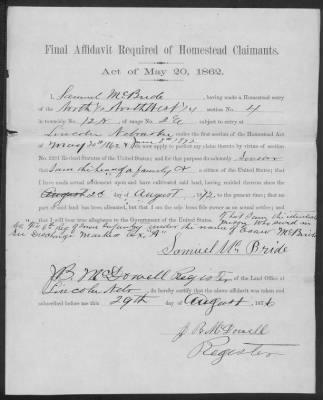 Final Affidavit Required of Homestead Claimants.
Act of May 20, 1862.
I, Samuel McBride, having made a Homestead entry
of the North ½ North West ¼ section No. 4
in township No. 12 N, of range No. 2 E subject to entry at
Lincoln Nebraska under the first section of the Homestead Act
of May 20th 1862 & June 8th 1872 do now apply to perfect my claim thereby virtue of
section No. 2291 Revised Statutes of the United States; and for that purpose do solemnly
that I am the head of a family & a citizen of the United States; that I
have made actual settlement upon and have cultivated said land, having resided thereon since the
day of August, 1872, to the present time; that no
part of said land has been alienated, but that I am the sole bona fide owner as an actual settler; and
that I will bear true allegiance to the Government of the United States.
that I am the identical
person who served in
Co. Regt Infantry under the name of McBride
as Exhibit Marked Ex. "A"
Samuel McBride
I, J B McDowell Register of the Land Office at
Lincoln Nebr, do hereby certify that the above affidavit was taken and
subscribed before me this 29th day of August, 1876
J. B. McDowell
Register